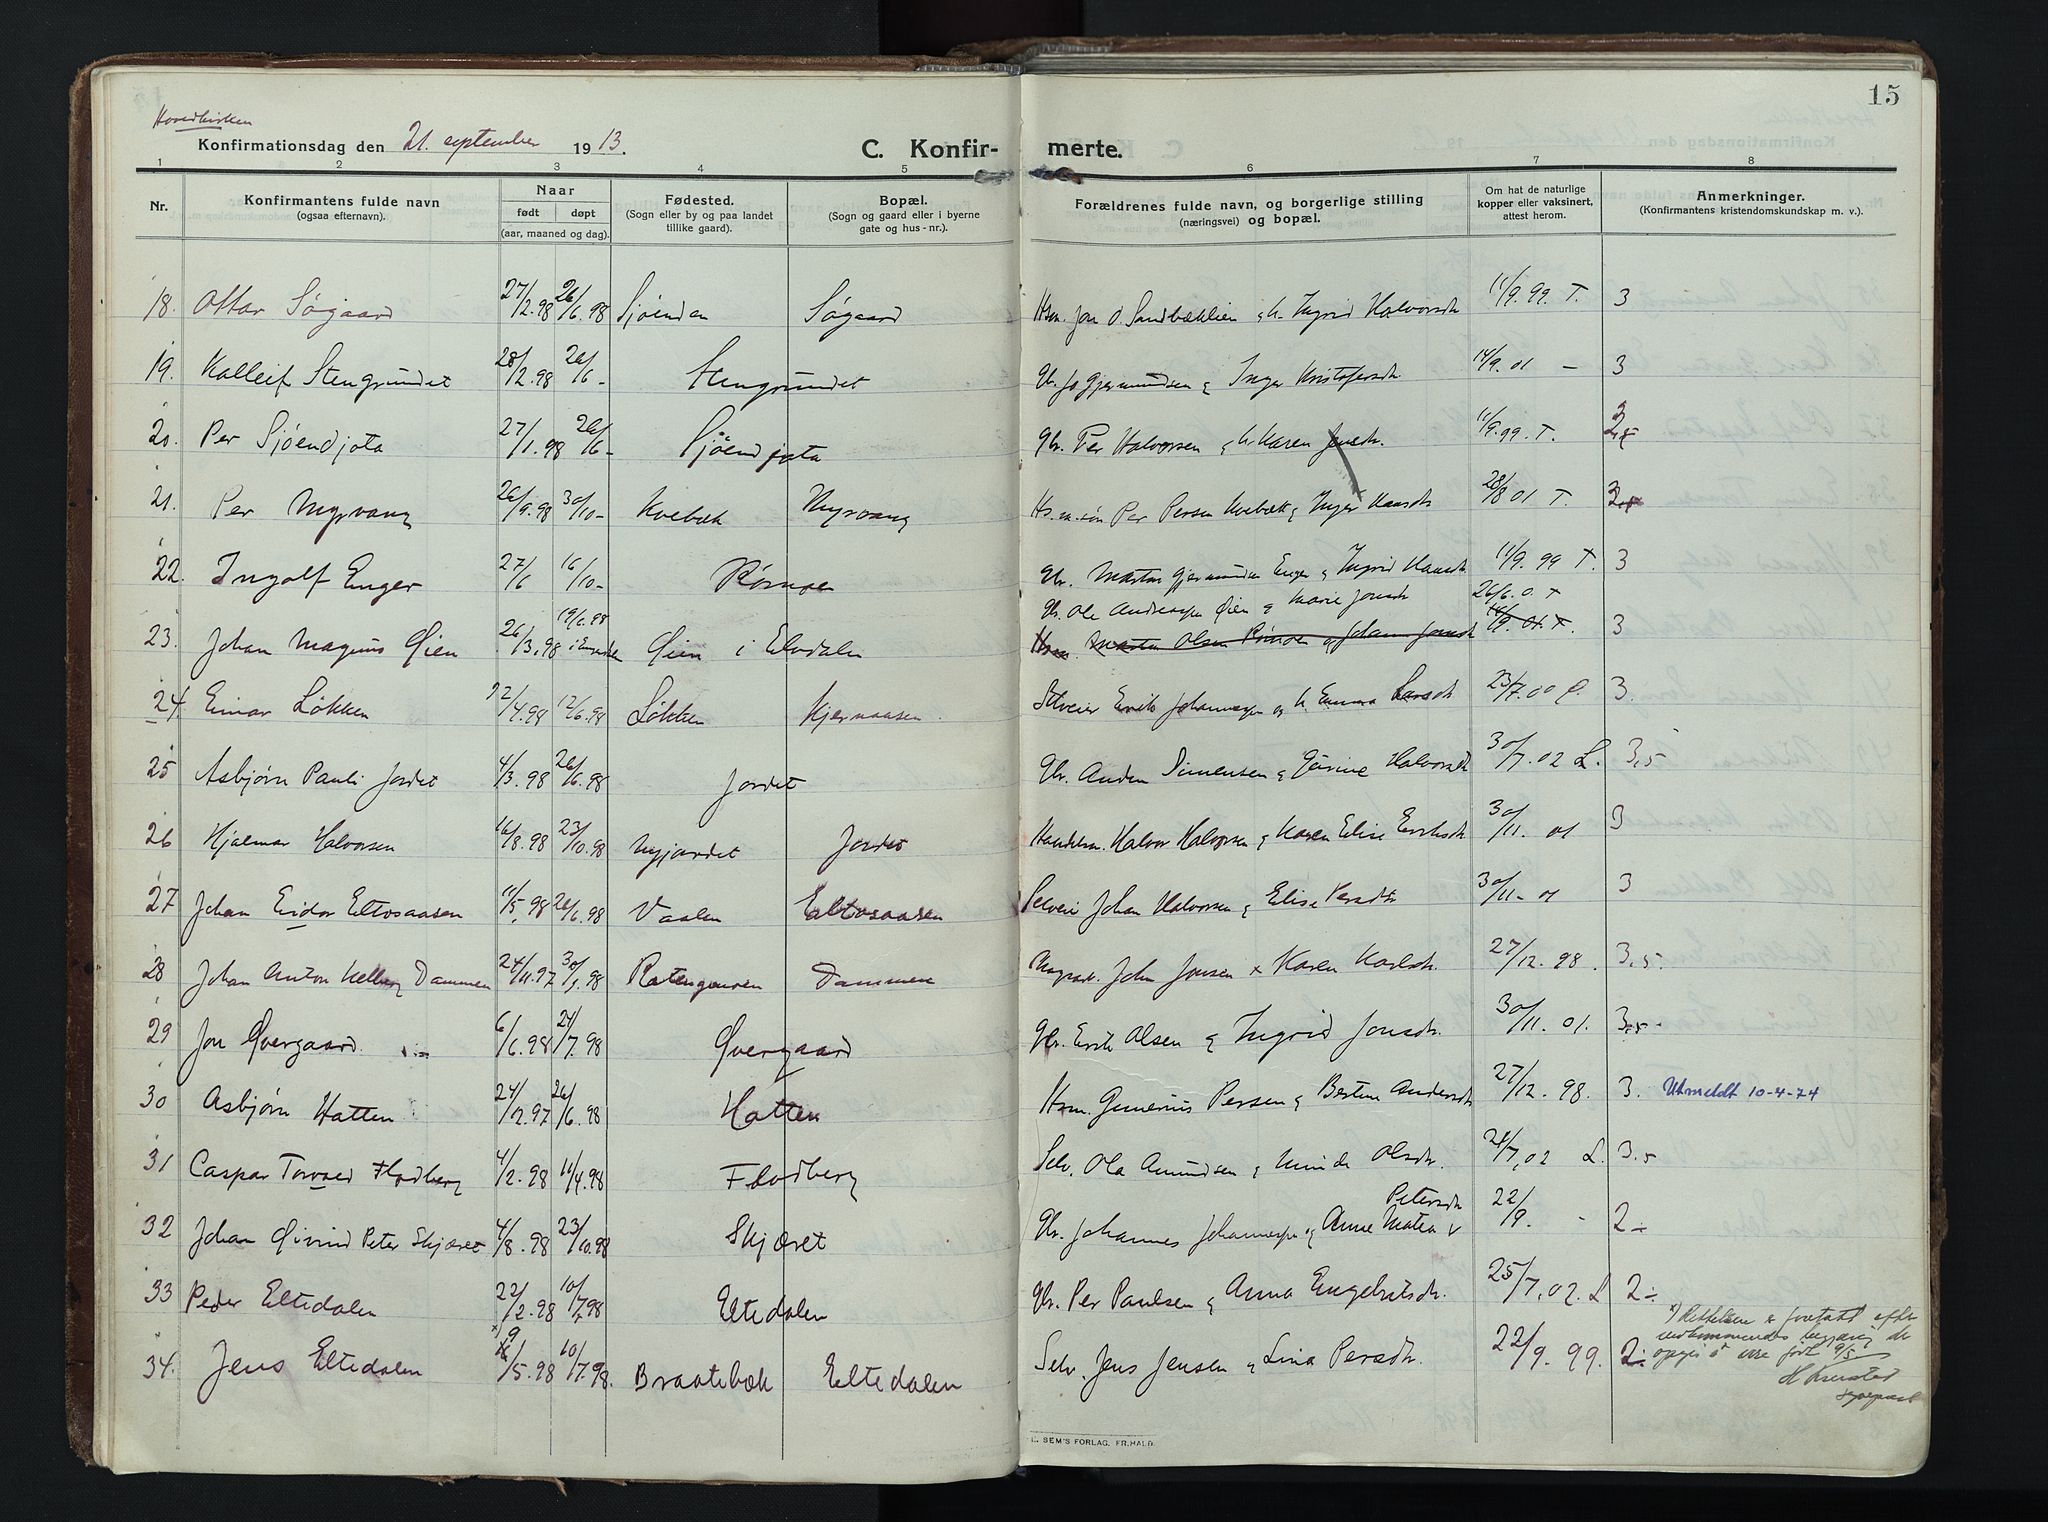 15
Hovedkirken
Konfirmationsdag den 21. september 1913.
C. Konfir- merte.
1 2 3 4 5 6 7 8
Nr.
Konfirmantens fulde navn
(ogsaa efternavn).
Naar
født døpt
(aar, maaned og dag).
Fødested.
(Sogn eller by og paa landet
tillike gaard).
Bopæl.
(Sogn og gaard eller i byerne
gate og hus-nr.).
Forældrenes fulde navn, og borgerlige stilling
(næringsvei) og bopæl.
Om hat de naturlige
kopper eller vaksinert,
attest herom.
Anmerkninger.
(Konfirmantens kristendomskundskap m. v.).
18. Ottar Søgaard 27/2.98 26/6.98 Sjøenden Søgaard Hsm. Jon O. Sandbækken & h. Ingrid Halvorsdtr 11/9.99. T. 3
19. Kolleif Stengrundet 28/2.98 26/6- Stengrundet Gbr. Jo Gjermundsen & Inger Kristofersdtr 14/9.01 - 3
20. Per Sjøendjota 27/1.98 26/6- Sjøendjota Gbr. Per Halvorsen & h. Karen Jonsdtr. 11/9.99. T.
21. Per Myrvang 26/9.98 30/10- Kvebæk Myrvang Hs.m.søn Per Persen Kvebæk & Inger Hansdtr 28/8 01 T.
22. Ingolf Enger 27/6 16/10- Rømoen Gbr. Martin Gjermundsen Enger & Ingrid Hansdtr 11/9.99 T. 3
Gbr. Ole Andreassen Øien & Marie Jonsdtr 26/6.0. T
23. Johan Magnus Øien 26/3.98 19/6.98 Øien i Elvdalen Hsm. Martin Olsen Rømoen og Johanne Jonsdtr 14/9.01. T. 3
24. Einar Løkken 22/4.98 12/6.98 Løkken Kjernaasen Selveier Erik Johannesen og h. Emma Larsdtr 23/7.00 3.
25 Asbjørn Pauli Jordet 4/3.98 26/6.98 Jordet Gbr. Anders Simensen & Gurine Halvorsdtr 30/7.02 L. 3,5
26 Hjalmar Halvorsen 16/8.98 23/10.98 Nyjordet Jordet Handelsm. Halvor Halvorsen & Karen Elise Eriksdtr 30/11.01 3
27 Johan Eidar Eltosaasen 11/5.98 26/6.98 Vaalen Eltosaasen Selveier Johan Halvorsen & Elise Persdtr 30/11-01 3
28 Johan Anton Kelberg Dammen 24/11.97 30/1.98 Dammen John Jonsen & Karen Karlsdtr. 27/12.98. 3,5.
29 Jon Øvergaard. 6/6.98 24/7.98 Øvergaard Gbr. Erik Olsen & Ingrid Jonsdtr. 30/11.01. 3.5-
30 Asbjørn Hatten 24/12.97 26/6.98 Hatten Hsm. Gunerius Persen & Bertine Andersdtr 27/12.98. 3. Utmeldt 10-4-74
31 Caspar Torvald Flodberg 4/2.98 11/4.98 Flodberg Selv. Ola Amundsen & Minda Olsdtr. 24/7.02 L. 3.5
32 Johan Øivind Peter Skjæret 4/8.98 23/10.98 Skjæret Gbr. Johannes Johannessen & Anne Matea Petersdtr 22/9. - 2-
33 Peder Eltedalen 22/2.98 10/7.98 Eltedalen Gbr. Per Paulsen & Anna Engebretsdtr. 25/7.02. L 2-
34. Jens Eltedalen x) 9/5.98 10/7.98. Braatebæk Eltedalen Selv. Jens Jensen & Lina Persdtr. 22/9.99. 2-
x) Rettelsen er foretatt efter
vedkommendes begjæring, da
opgis å være født 9/5
sogneprest
E. SEM'S FORLAG, FR.HALD.